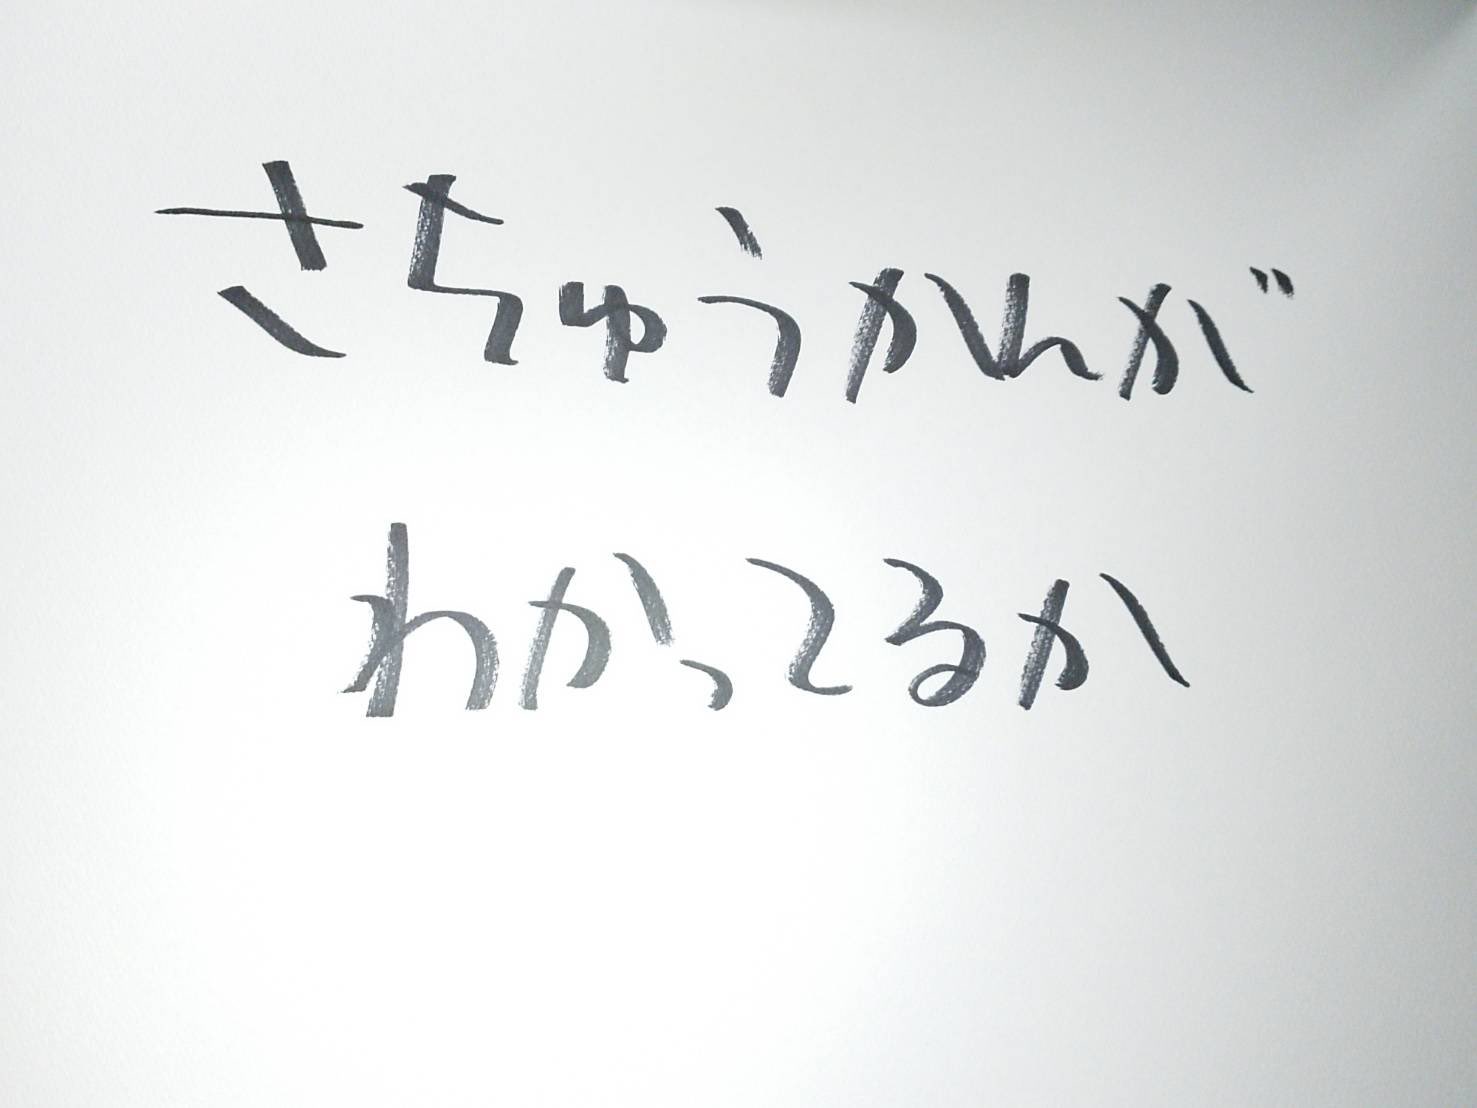 さちゅうかんが
わかってるか